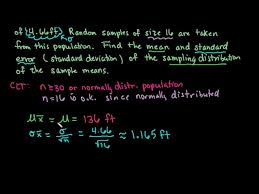 of (4.66 ft). Random samples of size 16 are taken
from this population. Find the mean and standard
error (standard deviation) of the sampling distribution
of the sample means.
CLT: n ≥ 30 or normally distr. population
n = 16 is o.k. since normally distributed
μx̄ = μ = 136 ft
σx̄ = σ/√n = 4.66/√16 ≈ 1.165 ft